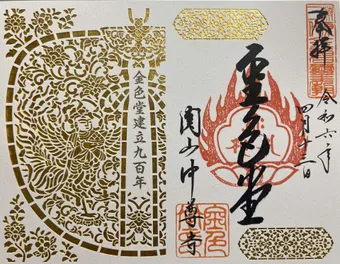 奉拝
令和六年
四月十三日
金色堂
関山中尊寺
金色堂建立九百年